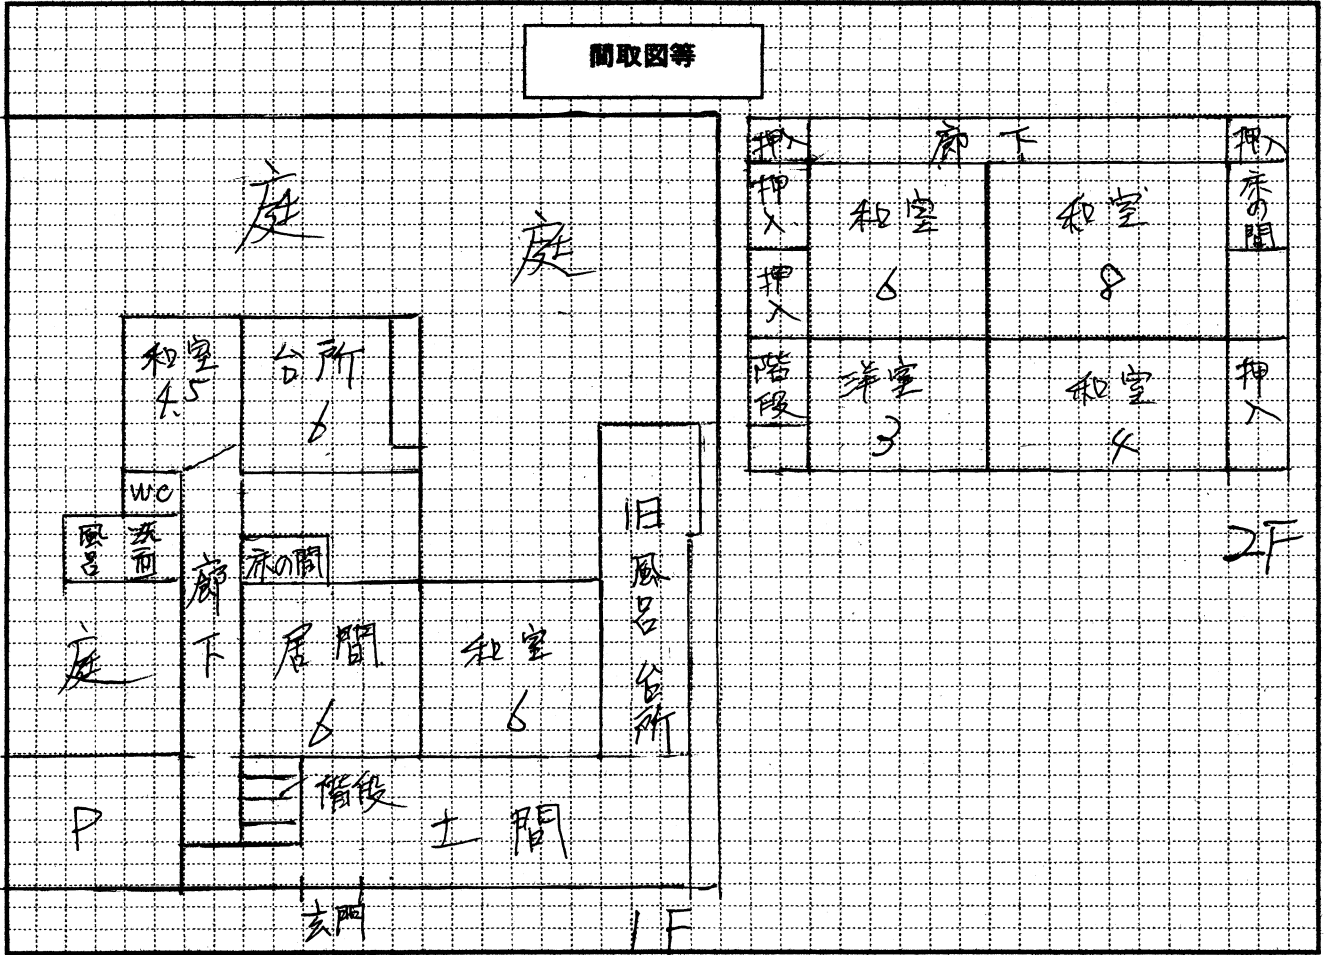 間取図等
庭
庭
和室
4.5
台所
6
WC
風呂
洗面
床の間
廊下
庭
居間
6
和室
6
旧風呂台所
P
階段
土間
玄関
1F
押入
廊下
押入
押入
和室
6
和室
8
床の間
押入
階段
洋室
3
和室
4
押入
2F